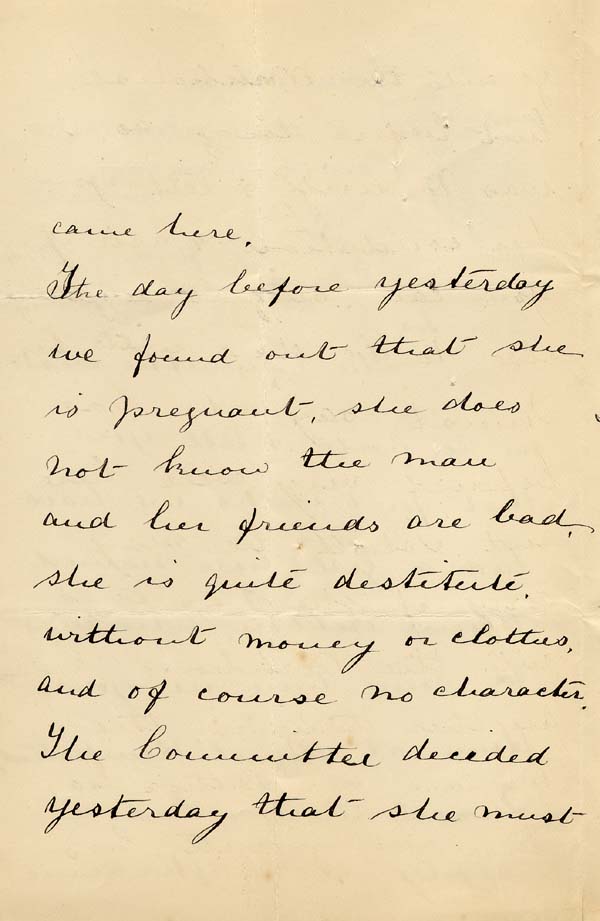 came here.
The day before yesterday
we found out that she
is pregnant, she does
not know the man
and her friends are bad,
she is quite destitute,
without money or clothes,
and of course no character.
The Committee decided
yesterday that she must